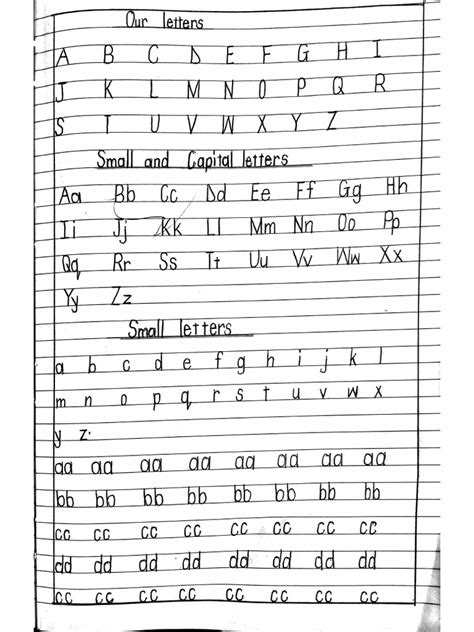 Our letters
A B C D E F G H I
J K L M N O P Q R
S T U V W X Y Z
Small and Capital letters
Aa Bb Cc Dd Ee Ff Gg Hh
Ii Jj Kk Ll Mm Nn Oo Pp
Qq Rr Ss Tt Uu Vv Ww Xx
Yy Zz
Small letters
a b c d e f g h i j k l
m n o p q r s t u v w x
y z.
aa aa aa aa aa aa aa aa
bb bb bb bb bb bb bb bb
cc cc cc cc cc cc cc cc
dd dd dd dd dd dd dd dd
cc cc cc cc cc cc cc cc